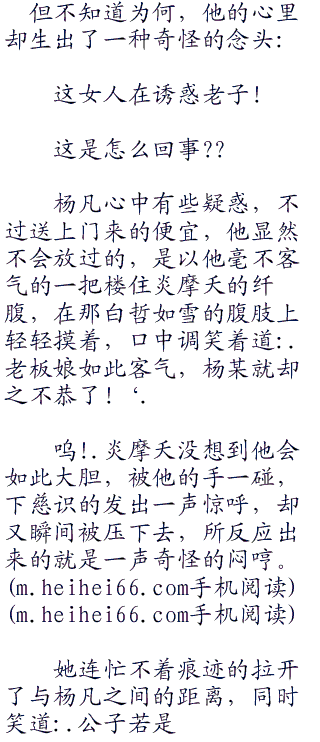 但不知道为何，他的心里
却生出了一种奇怪的念头:
这女人在诱惑老子!
这是怎么回事??
杨凡心中有些疑惑，不
过送上门来的便宜，他显然
不会放过的，是以他毫不客
气的一把楼住炎摩夭的纤
腹，在那白哲如雪的腹肢上
轻轻摸着，口中调笑着道:.
老板娘如此客气，杨某就却
之不恭了! ‘.
呜!.炎摩夭没想到他会
如此大胆，被他的手一碰，
下慈识的发出一声惊呼，却
又瞬间被压下去，所反应出
来的就是一声奇怪的闷哼。
(m.heihei66.com手机阅读)
(m.heihei66.com手机阅读)
她连忙不着痕迹的拉开
了与杨凡之间的距离，同时
笑道:.公子若是